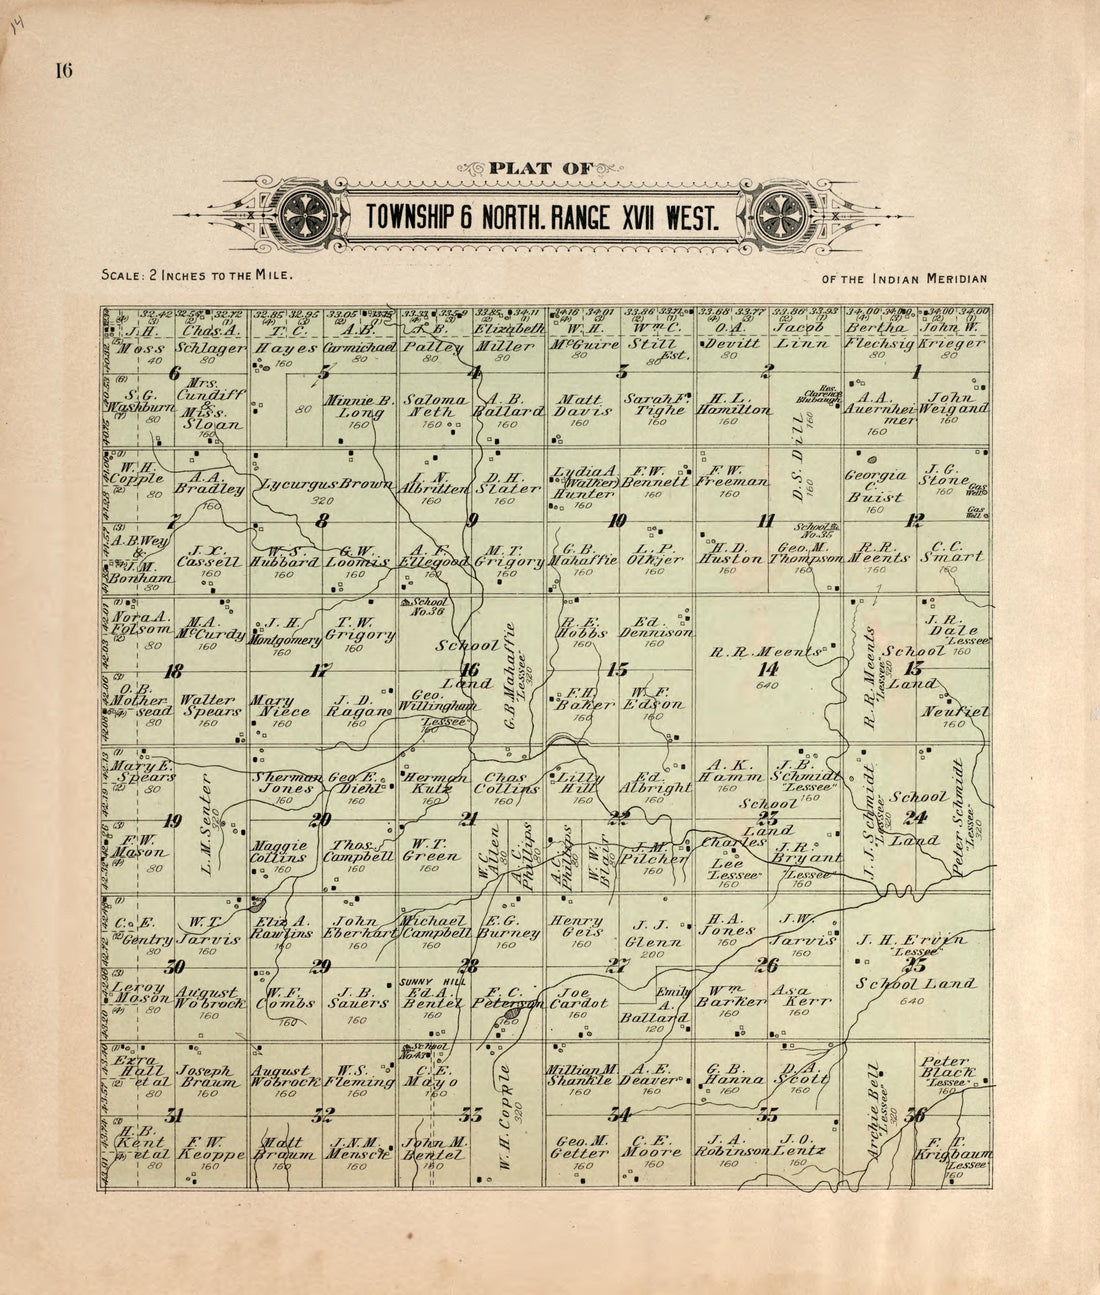 14
16
PLAT OF
TOWNSHIP 6 NORTH. RANGE XVII WEST.
SCALE: 2 INCHES TO THE MILE.
OF THE INDIAN MERIDIAN
J.H. Moss 40
Chas. A. Schlager 80
T. C. Hayes 160
A.B. Carmichael 80
J.B. Palley 80
Elizabeth Miller 80
W.H. McGuire 80
Wm C. Still Est. 80
O.A. Devitt 80
Jacob Linn 80
Bertha Flechsig 80
John W. Krieger 80
6
5
4
3
2
1
S.G. Washburn 80
Mrs. Cundiff & Miss. Sloan 160
80
Minnie B. Long 160
Saloma Neth 160
A. B. Ballard 160
Matt Davis 160
Sarah F. Tighe 160
H. L. Hamilton 160
D.S. Dill 160
160
Res. Clarence Blubaugh
A. A. Auernheimer 160
John Weigand 160
W. H. Copple 80
A.A. Bradley 160
Lycurgus Brown 320
L. N. Albritten 160
D. H. Slater 160
Lydia A. (Walker) Hunter 160
F.W. Bennett 160
F. W. Freeman 160
Georgia C. Buist 160
J. G. Stone 160
Gas Well
Gas Well
7
8
9
10
11
12
School No. 35
A.B. Wey & J.M. Bonham 80
J.X. Cassell 160
W.S. Hubbard 160
G.W. Loomis 160
A. F. Ellegood 160
M. T. Grigory 160
G.B. Mahaffie 160
L. P. Olkjer 160
H. D. Huston 160
Geo. M. Thompson 160
R. R. Meents 160
C. C. Smart 160
Nora A. Folsom 80
M.A. McCurdy 160
J. H. Montgomery 160
T. W. Grigory 160
School No.36
School Land
G.B. Mahaffie "Lessee" 320
R. E. Hobbs 160
Ed. Dennison 160
R. R. Meents 640
R. R. Meents "Lessee" 320
School Land
J. R. Dale "Lessee" 160
18
17
16
15
14
13
O.B. Mothersead 80
Walter Spears 160
Mary Niece 160
J. D. Ragan 160
Geo. Willingham "Lessee" 160
F.H. Baker 160
W. F. Edson 160
Neufiel 160
Mary E. Spears 80
L.M. Senter 320
Sherman Jones 160
Geo. E. Diehl 160
Herman Kutz 160
Chas Collins 160
Lilly Hill 160
Ed. Albright 160
A. K. Hamm 160
J.B. Schmidt "Lessee" 160
School Land
J. J. Schmidt "Lessee" 320
School Land
Peter Schmidt "Lessee" 320
19
20
21
22
23
24
F.W. Mason 80
Maggie Collins 160
Thos. Campbell 160
W.T. Green 160
W.C. Allen 80
A.C. Phillips 80
A.C. Phillips 80
W.W. Blair 80
J.M. Pilcher 160
Charles Lee "Lessee" 160
J.R. Bryant "Lessee" 160
C. E. Gentry 80
W.T. Jarvis 160
Eliz A. Rawlins 160
John Eberhart 160
Michael Campbell 160
E.G. Burney 160
Henry Geis 160
J. J. Glenn 200
H.A. Jones 160
J.W. Jarvis 160
J. H. Ervin "Lessee"
School Land 640
30
29
28
27
26
25
Leroy Moson 80
August Wobrock 160
W.F. Combs 160
J. B. Sauers 160
SUNNY HILL
Ed. A. Bentel 160
F. C. Peterson 160
Joe Cardot 160
Emily A. Ballard 120
Wm Barker 160
Asa Kerr 160
Ezra Hall et al 80
Joseph Braum 160
August Wobrock 160
W.S. Fleming 160
School No.43
C.E. Mayo 160
W.H. Copple 320
Millian M. Shankle 160
A. E. Deaver 160
G. B. Hanna 160
D. A. Scott 160
Archie Bell "Lessee" 320
Peter Black "Lessee" 160
31
32
33
34
35
36
H.B. Kent et al 80
F. W. Keoppe 160
Matt Braum 160
J.N.M. Mensch 160
John M. Bentel 160
Geo. M. Getter 160
C. E. Moore 160
J. A. Robinson 160
J. O. Lentz 160
F. T. Krigbaum "Lessee" 160